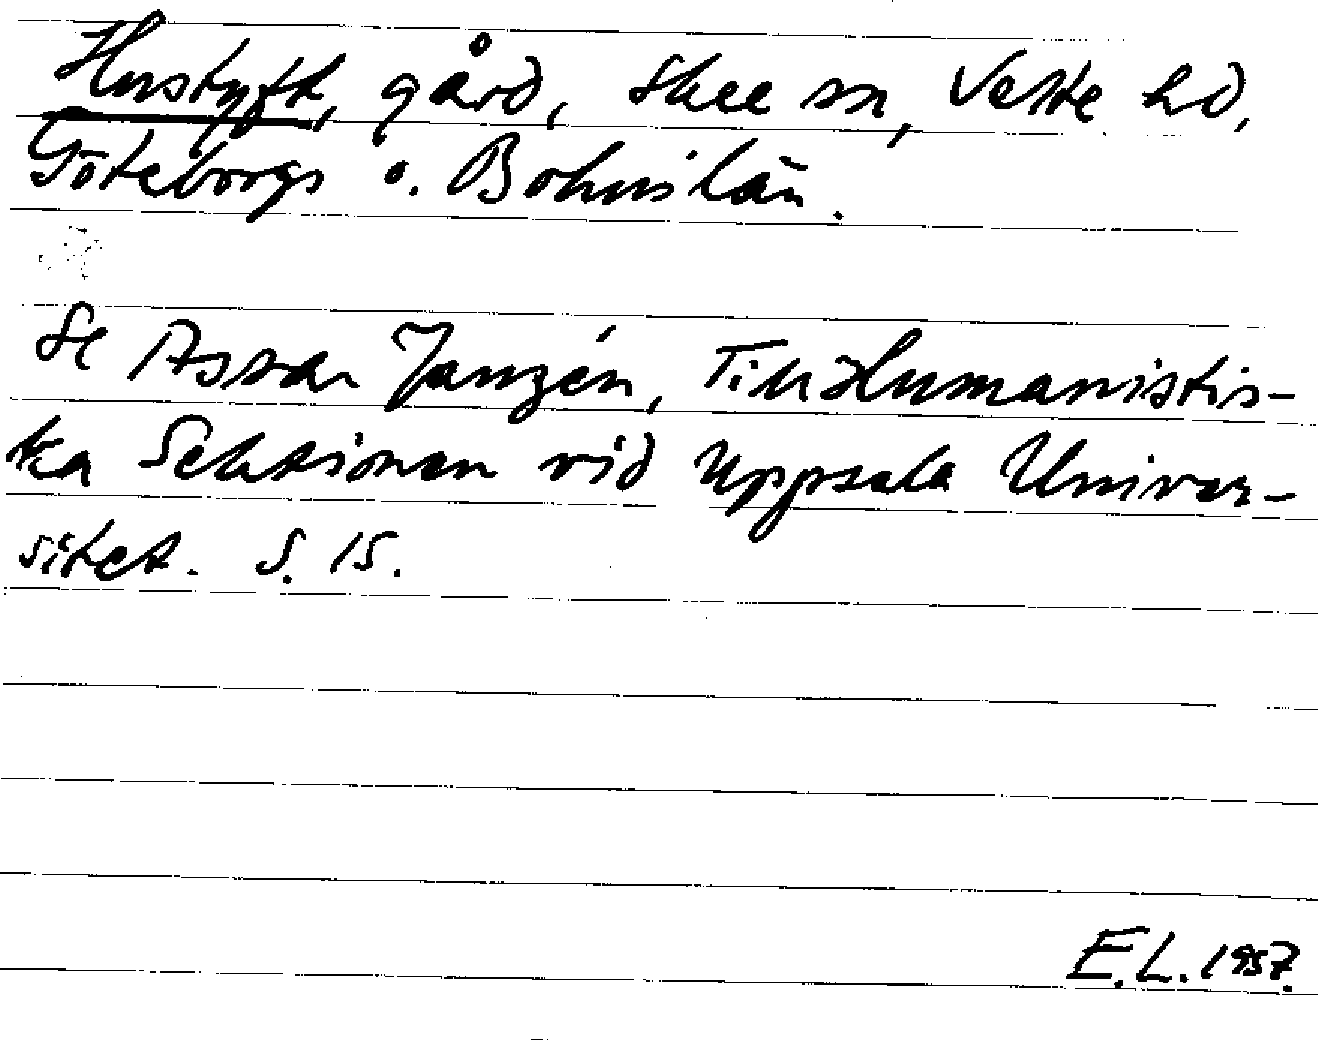 Hustyft, gård, Skee sn, Vette hd,
Göteborgs o. Bohus län.
Se Assar Janzén, Till Humanistis-
ka Sektionen vid Uppsala Univer-
sitet. S. 15.
E.L. 1957.